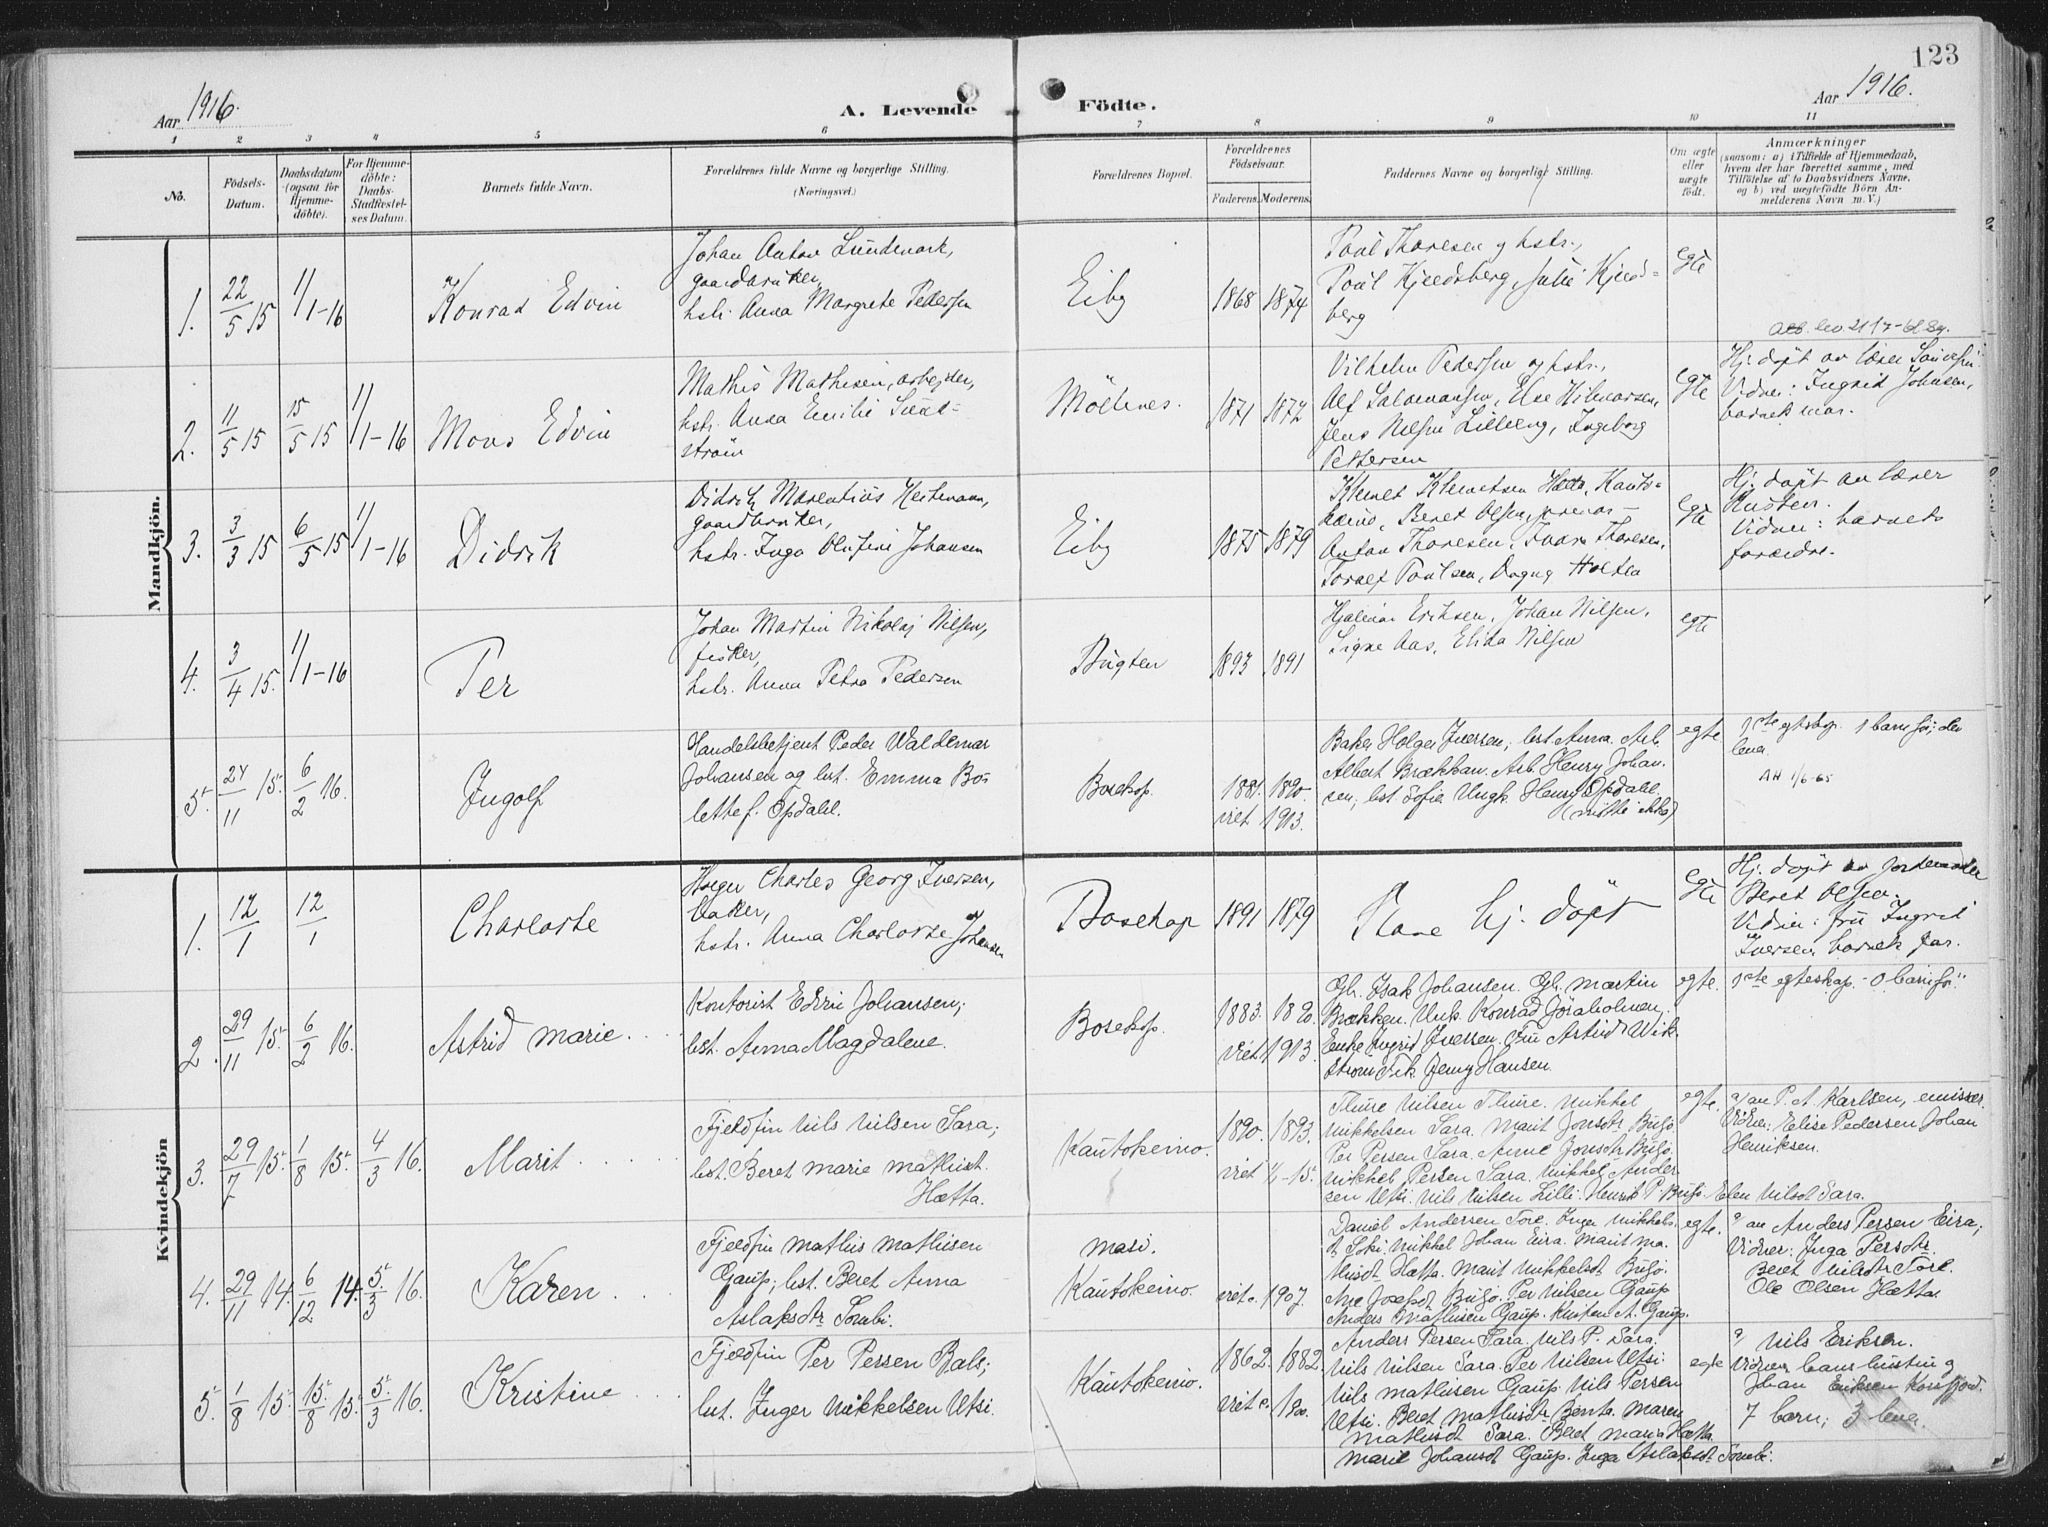 123
Aar 1916.
A. Levende Fødte.
Aar 1916.
1 2 3 4 5 6 7 8 9 10 11
No.
Födsels-Datum.
Daabsdatum (ogsaa for Hjemme-döbte).
For Hjemme-döbte: Daabs-Stadfæstel-ses Datum.
Barnets fulde Navn.
Forældrenes fulde Navne og borgerlige Stilling.
(Næringsvei.)
Forældrenes Bopæl.
Forældrenes Födselsaar.
Faderens. Moderens.
Faddernes Navne og borgerlige Stilling.
Om ægte eller uægte födt.
Anmærkninger
(saasom: a) i Tilfælde af Hjemmedaab,
hvem der har forrettet samme, med
Tilföielse af to Daabsvidners Navne,
og b) ved uægtefödte Börn An-
melderens Navn m. V.)
Mandkjön.
1. 22/5 15 1/1-16 Konrad Edvin
Johan Anton Lundmark,
gaardbruker,
hstr. Anna Margrete Pedersen
Eiby 1868 1874
Poul Thoresen og hstr.,
Poul Kjeldsberg, Julie Kjelds-
berg
egte
2. 11/5 15 15/5 15 1/1-16 Mons Edvin
Mathis Mathisen, arbejder,
hstr. Anna Emilie Lund-
ström
Möllenes. 1871 1872
Vilhelm Pedersen og hstr.,
Alf Salamonsen, Else Hilmarsen,
Jens Nilsen Lilleeng, Ingeborg
Pettersen
egte
Hj. døpt av lærer
Vidner: Ingrid Johnsen,
barnets mor.
3. 3/3 15 6/5 15 1/1-16 Didrik
Didrik Marentius Heitmann,
gaardbruker,
hstr. Inga Olufine Johansen
Eiby 1875 1879
Klemet Klemetsen Hætta, Kauto-
keino, Beret Olsen,
Anton Thoresen, Ivar Thoresen,
Toralf Poulsen, Dagny Holten
egte
Hj. døpt av lærer
Husten.
Vidner: barnets
forældre.
4. 3/4 15. 1/1-16 Per
Johan Martin Nikolaj Nilsen,
fisker,
hstr. Anna Petra Pedersen
Bugten 1893 1891
Hjalmar Eriksen, Johan Nilsen,
Signe Aas, Elida Nilsen
egte
5. 24/11 15. 6/2 16. Ingolf
Handelsbetjent Peder Waldemar
Johansen og hst. Emma Bo-
lettef. Opdahl.
Bosekop. 1881. 1890.
viet 1913.
Baker Holger Iversen; hst Anna. Arb.
Albert Brækkan. Arb. Henry Johan-
sen; hst. Sofie Ungk. Henry Opdahl.
egte
1ste egteskap. 1 barn för; der
lever
AH 1/6-65
Kvindekjön
1. 12/1 12/1 Charlotte
Holger Charles Georg Iversen,
baker,
hstr. Anna Charlotte Johansen
Bosekop 1891 1879
Bare hj. døpt
egte
Hj. døpt av jordemoder
Beret Olsen.
Vidner: fru Ingrid
Iversen, barnets far.
2. 29/11 15. 6/2 16. Astrid Marie
Kontorist Edvin Johansen;
hst. Anna Magdalene.
Bosekop. 1883. 1890.
Viet 1913.
Gb. Isak Johansen. Gb. Martin
Brækken. Unk. Konrad Jöraholmen.
Enke Ingrid Iversen. Fru Astrid Wik-
ström. Frk. Jenny Hansen.
egte.
1ste egteskap. - 0 barn för
3. 29/7 15. 1/8 15. 4/3 16. Marit
Fjeldfin Nils Nilsen Sara;
hst. Beret Marie Mathisd.
Hætta.
Kautokeino. 1890. 1893.
viet 1/1-15.
Thure Nilsen Thure. Mikkel
Mikkelsen Sara. Marit Jonsdtr Buljo
Per Persen Sara. Anne Jonsdtr Buljo.
Mikkel Persen Sara. Mikkel Ander-
sen Utsi. Nils Nilsen Lilli. Henrik P. Buljo. Elen Nilsdt Sara.
egte.
a/ av P. A. Karlsen, emissær.
Vidner: Elise Pedersen Johan
Henriksen.
4. 29/11 14. 6/12 14. 5/3 16. Karen
Fjeldfin Mathis Mathisen
Gaup; hst. Beret Anna
Aslaksdtr Sombi.
Masi.
Kautokeino. viet 1907.
Daniel Andersen Tore. Inger Mikkels-
d. Soki. Mikkel Johan Eira. Marit Ma-
thisdt. Hætta. Marit Mikkelsdt Buljo.
Ane Josefsdt. Buljo. Per Nilsen Gaup
Anders Mathisen Gaup. Kirsten A. Gaup.
egte.
a/ av Anders Persen Eira;
Vidner: Inga Persdtr.
Beret Nilsdtr Tore.
Ole Olsen Hætta
5. 1/8 15. 15/8 15. 5/3 16. Kristine
Fjeldfin Per Persen Bals;
hst. Inger Mikkelsen Utsi.
Kautokeino. 1862. 1882.
viet 1900.
Anders Persen Sara. Nils P. Sara.
Nils Nilsen Sara. Per Nilsen Utsi.
Nils Mathisen Gaup. Nils Persen
Utsi. Beret Mathisdtr Bentz. Maren
Mathisdt Sara. Beret Maria Hætta.
Marie Johansdt Gaup. Inga Aslaksdt Sombi.
egte
a/ Nils Eriksen.
Vidner: hans hustru og
Johan Eriksen Korsfjord.
7 barn; 3 lever.